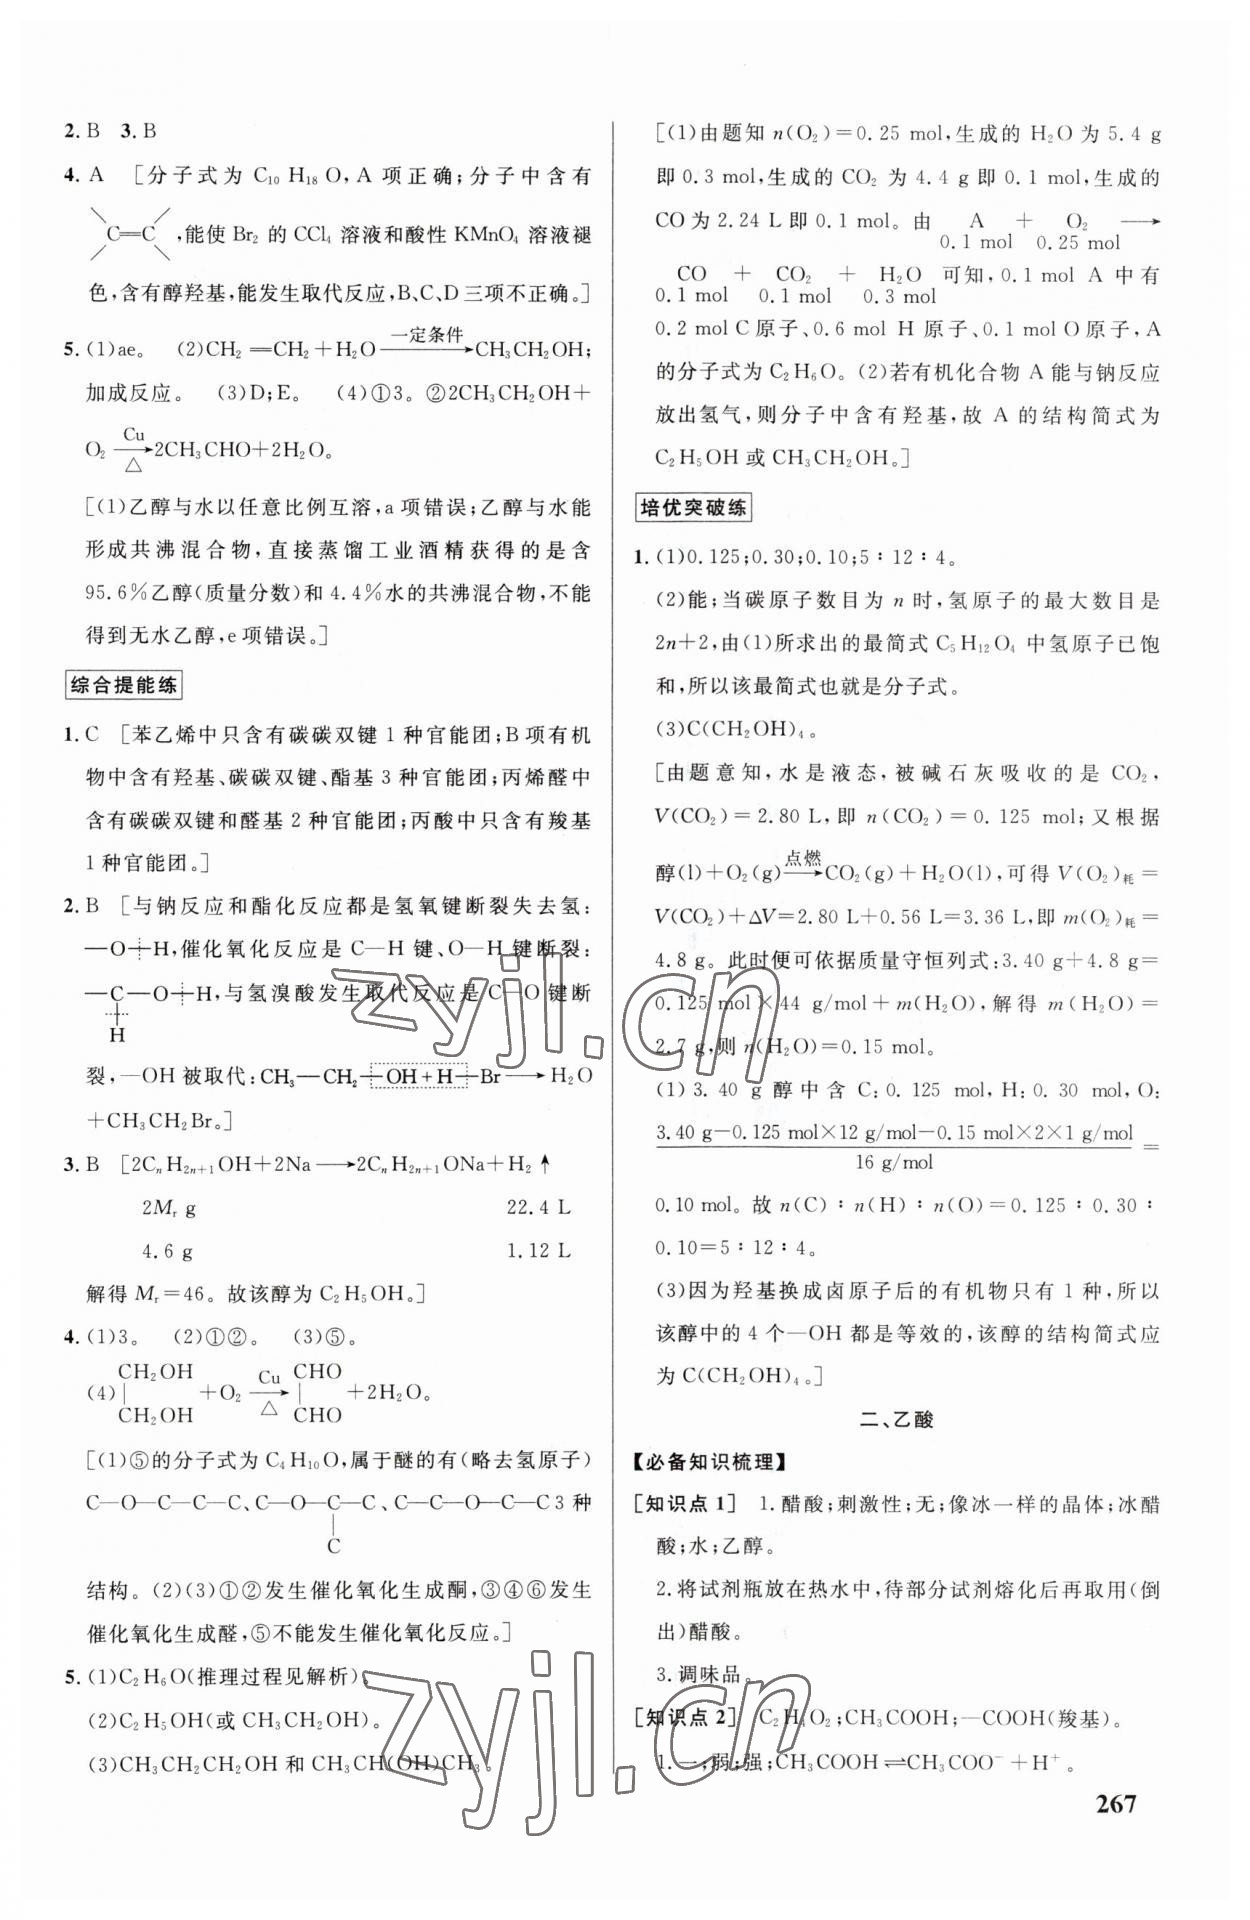 2. B　3. B
4. A　[分子式为 C₁₀H₁₈O,A 项正确;分子中含有
C═C ,能使 Br₂ 的 CCl₄ 溶液和酸性 KMnO₄ 溶液褪
色,含有醇羟基,能发生取代反应,B、C、D三项不正确。]
5. (1)ae。　(2)CH₂═CH₂+H₂O —一定条件→ CH₃CH₂OH;
加成反应。　(3)D;E。　(4)①3。②2CH₃CH₂OH+
O₂ —Cu/△→ 2CH₃CHO+2H₂O。
[(1)乙醇与水以任意比例互溶,a 项错误;乙醇与水能
形成共沸混合物,直接蒸馏工业酒精获得的是含
95.6%乙醇(质量分数)和 4.4%水的共沸混合物,不能
得到无水乙醇,e 项错误。]
综合提能练
1. C　[苯乙烯中只含有碳碳双键 1 种官能团;B 项有机
物中含有羟基、碳碳双键、酯基 3 种官能团;丙烯醛中
含有碳碳双键和醛基 2 种官能团;丙酸中只含有羧基
1 种官能团。]
2. B　[与钠反应和酯化反应都是氢氧键断裂失去氢:
—O┼H,催化氧化反应是 C—H 键、O—H 键断裂:
—C—O┼H,与氢溴酸发生取代反应是 C—O 键断
H
裂,—OH 被取代:CH₃—CH₂┼OH+H┼Br→H₂O
+CH₃CH₂Br。]
3. B　[2CₙH₂ₙ₊₁OH+2Na→2CₙH₂ₙ₊₁ONa+H₂↑
2Mᵣ g　22.4 L
4.6 g　1.12 L
解得 Mᵣ=46。故该醇为 C₂H₅OH。]
4. (1)3。　(2)①②。　(3)⑤。
CH₂OH　Cu　CHO
(4) | +O₂ → | +2H₂O。
CH₂OH　△　CHO
[(1)⑤的分子式为 C₄H₁₀O,属于醚的有(略去氢原子)
C—O—C—C—C、C—O—C—C、C—C—O—C—C 3 种
C
结构。(2)(3)①②发生催化氧化生成酮,③④⑥发生
催化氧化生成醛,⑤不能发生催化氧化反应。]
5. (1)C₂H₆O(推理过程见解析)。
(2)C₂H₅OH(或 CH₃CH₂OH)。
(3)CH₃CH₂CH₂OH 和 CH₃CH(OH)CH₃。
[(1)由题知 n(O₂)=0.25 mol,生成的 H₂O 为 5.4 g
即 0.3 mol,生成的 CO₂ 为 4.4 g 即 0.1 mol,生成的
CO 为 2.24 L 即 0.1 mol。由　A　+　O₂　→
0.1 mol　0.25 mol
CO　+　CO₂　+　H₂O 可知,0.1 mol A 中有
0.1 mol　0.1 mol　0.3 mol
0.2 mol C 原子、0.6 mol H 原子、0.1 mol O 原子,A
的分子式为 C₂H₆O。(2)若有机化合物 A 能与钠反应
放出氢气,则分子中含有羟基,故 A 的结构简式为
C₂H₅OH 或 CH₃CH₂OH。]
培优突破练
1. (1)0.125;0.30;0.10;5∶12∶4。
(2)能;当碳原子数目为 n 时,氢原子的最大数目是
2n+2,由(1)所求出的最简式 C₅H₁₂O₄ 中氢原子已饱
和,所以该最简式也就是分子式。
(3)C(CH₂OH)₄。
[由题意知,水是液态,被碱石灰吸收的是 CO₂,
V(CO₂)=2.80 L,即 n(CO₂)=0.125 mol;又根据
醇(l)+O₂(g) —点燃→ CO₂(g)+H₂O(l),可得 V(O₂)耗=
V(CO₂)+ΔV=2.80 L+0.56 L=3.36 L,即 m(O₂)耗=
4.8 g。此时便可依据质量守恒列式:3.40 g+4.8 g=
0.125 mol×44 g/mol+m(H₂O),解得 m(H₂O)=
2.7 g,则 n(H₂O)=0.15 mol。
(1)3.40 g 醇中含 C:0.125 mol,H:0.30 mol,O:
3.40 g−0.125 mol×12 g/mol−0.15 mol×2×1 g/mol =
16 g/mol
0.10 mol。故 n(C)∶n(H)∶n(O)=0.125∶0.30∶
0.10=5∶12∶4。
(3)因为羟基换成卤原子后的有机物只有 1 种,所以
该醇中的 4 个—OH 都是等效的,该醇的结构简式应
为 C(CH₂OH)₄。]
二、乙酸
【必备知识梳理】
[知识点 1]　1.醋酸;刺激性;无;像冰一样的晶体;冰醋
酸;水;乙醇。
2.将试剂瓶放在热水中,待部分试剂熔化后再取用(倒
出)醋酸。
3.调味品。
[知识点 2]　C₂H₄O₂;CH₃COOH;—COOH(羧基)。
1.一;弱;强;CH₃COOH⇌CH₃COO⁻+H⁺。
267
zyjl.cn
zyjl.cn